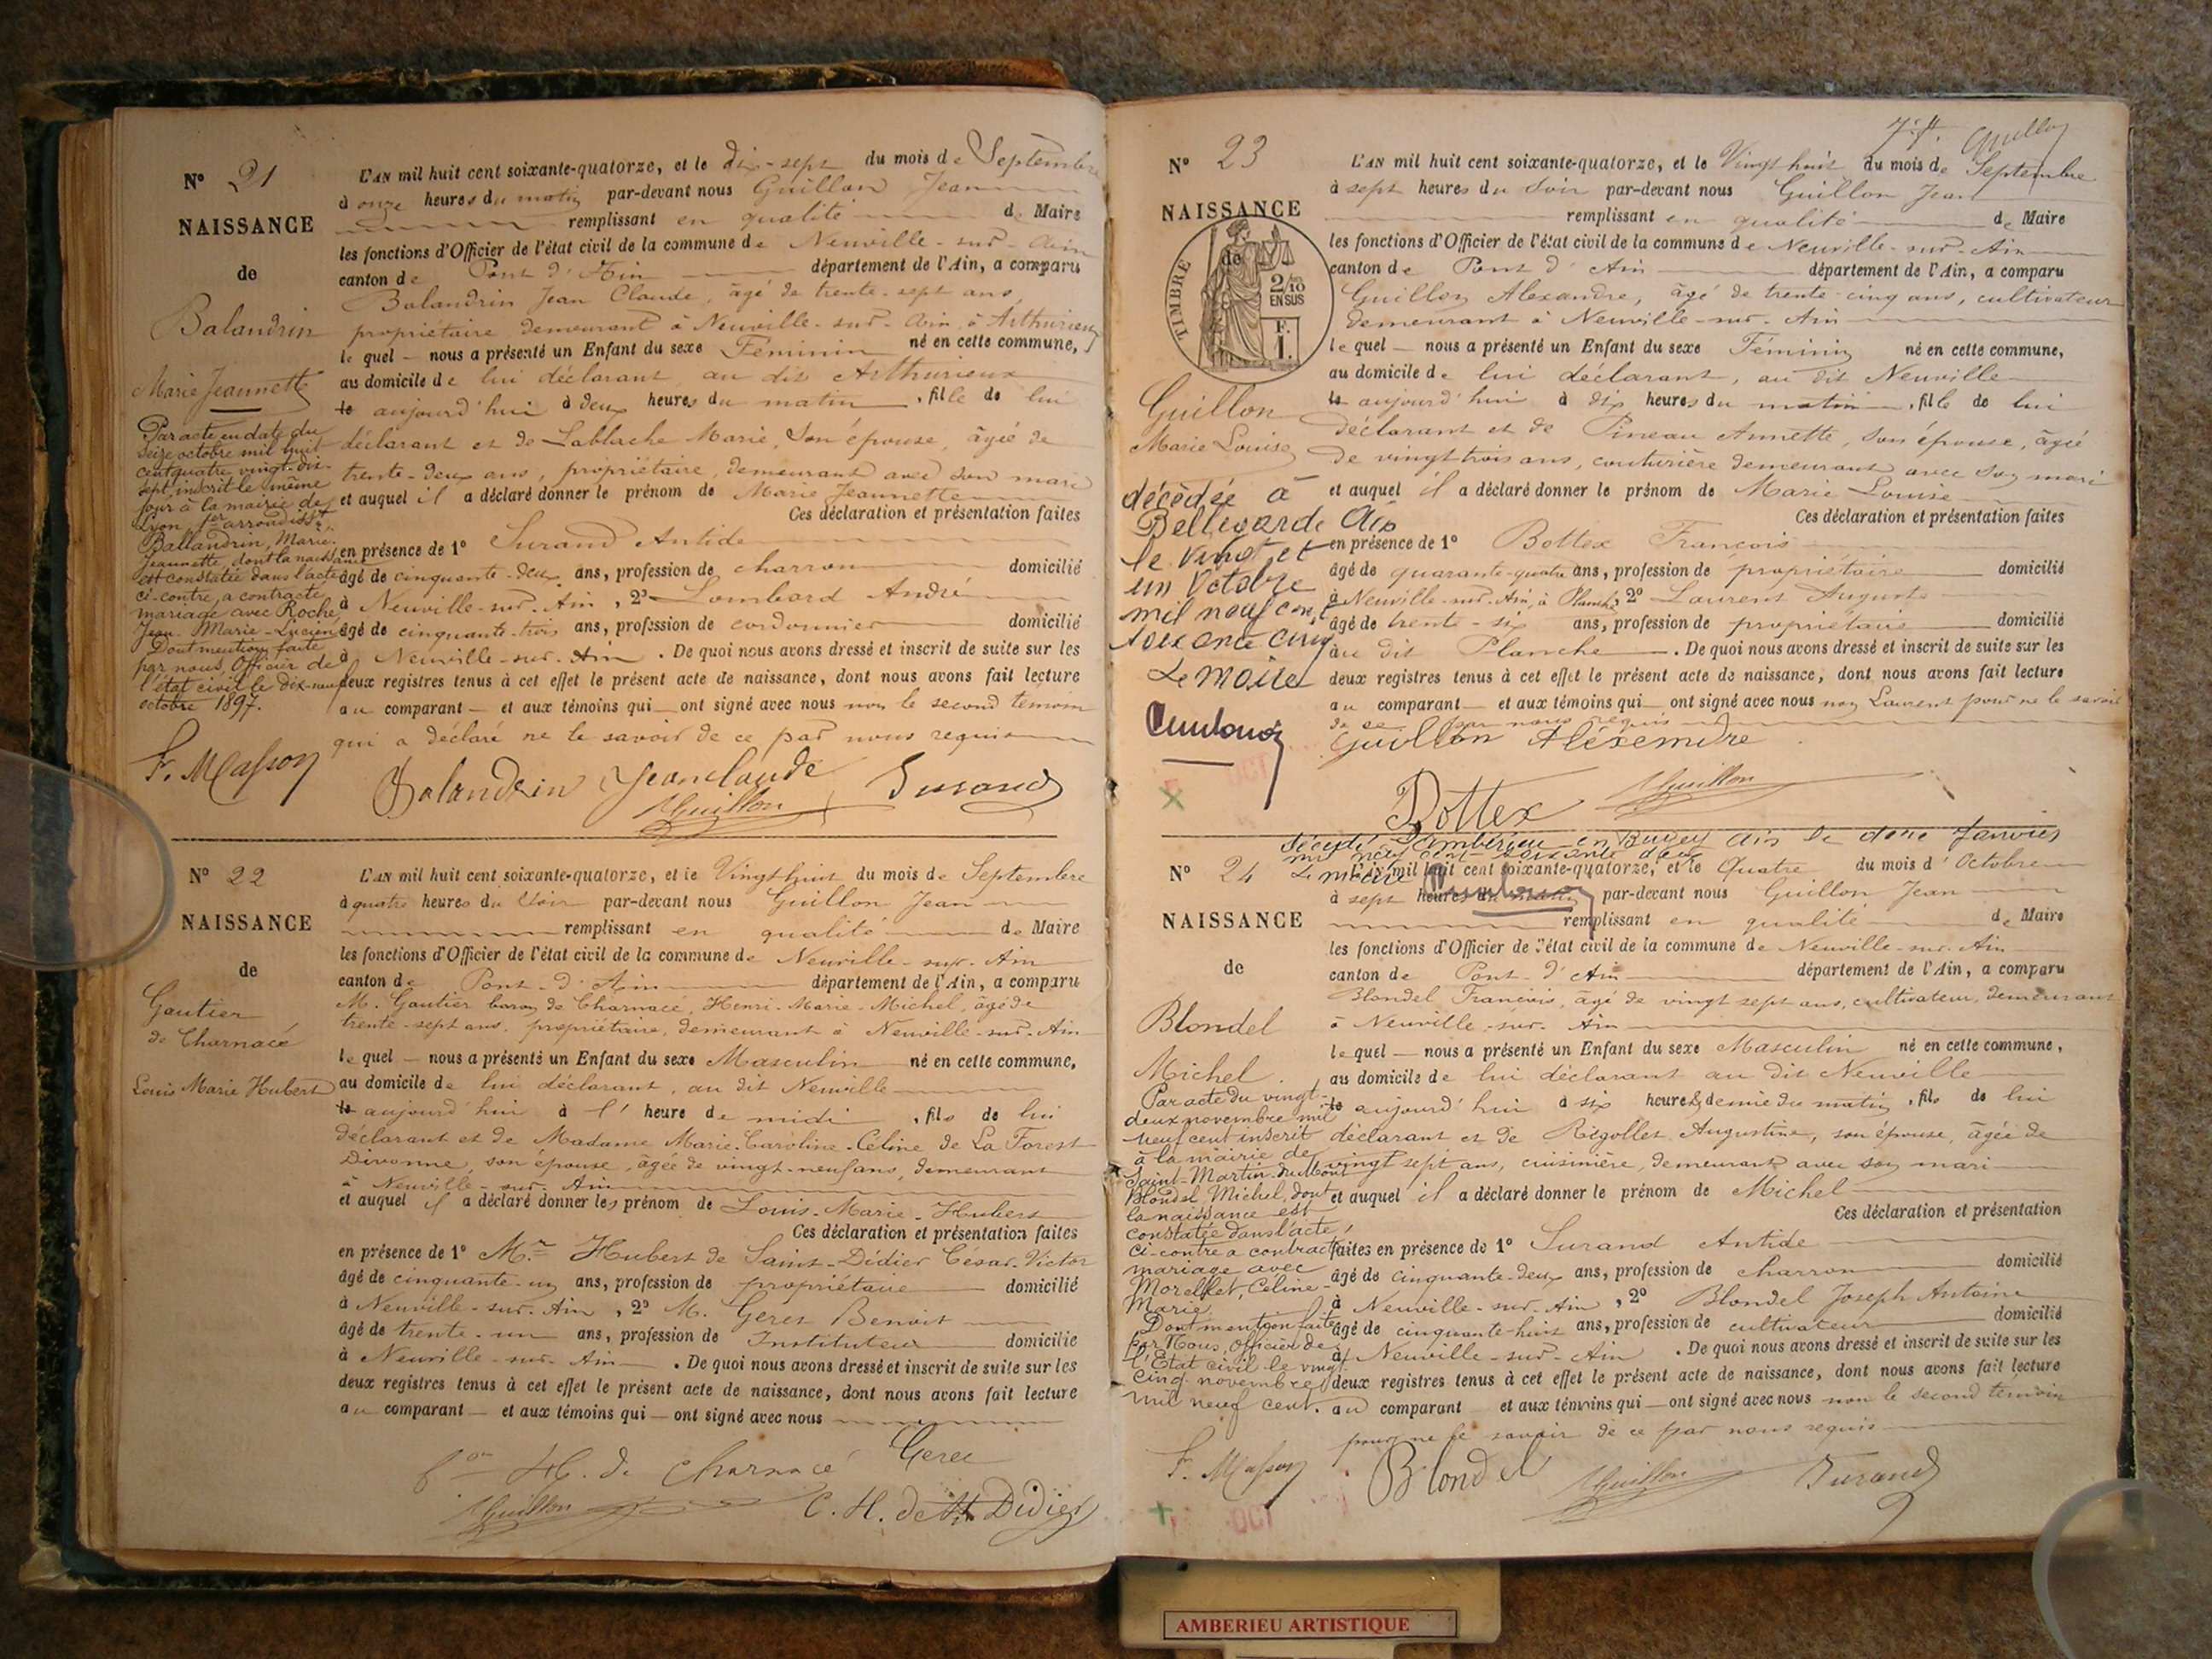 N° 21
NAISSANCE
de
Balandrin
Marie Jeannette
Par acte en date du
seize octobre mil huit
cent quatre vingt-dix-
sept, inscrit le même
jour à la mairie de
Lyon, 1er arrondisst
Ballandrin, Marie-
Jeannette, dont la naissance
est constatée dans l'acte
ci-contre, a contracté
mariage avec Roche
Jean-Marie-Lucien
Dont mention faite
par nous, Officier de
l'état civil le dix-neuf
octobre 1897.
F. Masson
L'AN mil huit cent soixante-quatorze, et le dix-sept du mois de Septembre
à onze heures du matin par-devant nous Guillon Jean
remplissant en qualité de Maire
les fonctions d'Officier de l'état civil de la commune de Neuville-sur-Ain
canton de Pont d'Ain département de l'Ain, a comparu
Balandrin Jean Claude, âgé de trente-sept ans,
propriétaire demeurant à Neuville-sur-Ain, à Arthurieux
lequel nous a présenté un Enfant du sexe Féminin né en cette commune,
au domicile de lui déclarant, au dit Arthurieux
le aujourd'hui à deux heures du matin, fille de lui
déclarant et de Lablache Marie, son épouse, âgée de
trente-deux ans, propriétaire, demeurant avec son mari
et auquel il a déclaré donner le prénom de Marie Jeannette
Ces déclaration et présentation faites
en présence de 1° Surand Antide
âgé de cinquante-deux ans, profession de charron domicilié
à Neuville-sur-Ain, 2° Lombard André
âgé de cinquante-trois ans, profession de cordonnier domicilié
à Neuville-sur-Ain. De quoi nous avons dressé et inscrit de suite sur les
deux registres tenus à cet effet le présent acte de naissance, dont nous avons fait lecture
au comparant et aux témoins qui ont signé avec nous non le second témoin
qui a déclaré ne le savoir de ce par nous requis
Balandrin Jeanclaude Surand
Guillon
N° 22
NAISSANCE
de
Gautier
de Charnacé
Louis Marie Hubert
L'AN mil huit cent soixante-quatorze, et le Vingt huit du mois de Septembre
à quatre heures du soir par-devant nous Guillon Jean
remplissant en qualité de Maire
les fonctions d'Officier de l'état civil de la commune de Neuville-sur-Ain
canton de Pont-d'Ain département de l'Ain, a comparu
M. Gautier baron de Charnacé, Henri-Marie-Michel, âgé de
trente-sept ans, propriétaire, demeurant à Neuville-sur-Ain
lequel nous a présenté un Enfant du sexe Masculin né en cette commune,
au domicile de lui déclarant, au dit Neuville
le aujourd'hui à l'heure de midi, fils de lui
déclarant et de Madame Marie-Caroline-Céline de La Forest
Divonne, son épouse, âgée de vingt-neuf ans, demeurant
à Neuville-sur-Ain
et auquel il a déclaré donner les prénom de Louis-Marie-Hubert
Ces déclaration et présentation faites
en présence de 1° Mr Hubert de Saint-Didier César-Victor
âgé de cinquante-un ans, profession de propriétaire domicilié
à Neuville-sur-Ain, 2° M. Geret Benoit
âgé de trente-un ans, profession de Instituteur domicilié
à Neuville-sur-Ain. De quoi nous avons dressé et inscrit de suite sur les
deux registres tenus à cet effet le présent acte de naissance, dont nous avons fait lecture
au comparant et aux témoins qui ont signé avec nous
bon H. de Charnacé Geret
Guillon C. H. de St Didier
N° 23
NAISSANCE
de
TIMBRE
2/10
EN SUS
F.
1.
Guillon
Marie Louise
décédée à
Bellegarde Ain
le vingt et
un Octobre
mil neuf cent
soixante cinq
Le Maire
7e ft. Guillon
L'AN mil huit cent soixante-quatorze, et le Vingt huit du mois de Septembre
à sept heures du soir par-devant nous Guillon Jean
remplissant en qualité de Maire
les fonctions d'Officier de l'état civil de la commune de Neuville-sur-Ain
canton de Pont d'Ain département de l'Ain, a comparu
Guillon Alexandre, âgé de trente-cinq ans, cultivateur
demeurant à Neuville-sur-Ain
lequel nous a présenté un Enfant du sexe Féminin né en cette commune,
au domicile de lui déclarant, au dit Neuville
le aujourd'hui à dix heures du matin, fille de lui
déclarant et de Pineau Annette, son épouse, âgée
de vingt trois ans, couturière demeurant avec son mari
et auquel il a déclaré donner le prénom de Marie Louise
Ces déclaration et présentation faites
en présence de 1° Bottex François
âgé de quarante-quatre ans, profession de propriétaire domicilié
à Neuville-sur-Ain, à Planche 2° Laurent Auguste
âgé de trente-six ans, profession de propriétaire domicilié
au dit Planche. De quoi nous avons dressé et inscrit de suite sur les
deux registres tenus à cet effet le présent acte de naissance, dont nous avons fait lecture
au comparant et aux témoins qui ont signé avec nous non Laurent pour ne le savoir
de ce par nous requis
Guillon Aléxemdre
OCT
Bottex Guillon
décédé Ambérieu-en-Bugey Ain le onze Janvier
mil neuf cent soixante deux
Le maire
N° 24
NAISSANCE
de
Blondel
Michel.
Par acte du vingt-
deux novembre mil
neuf cent inscrit
à la mairie de
Saint-Martin-du-Mont
Blondel Michel, dont
la naissance est
constatée dans l'acte
ci-contre a contracté
mariage avec
Morellet, Céline-
Marie.
Dont mention faite
par Nous, Officier de
l'Etat civil le vingt
cinq novembre
mil neuf cent.
F. Masson
L'AN mil huit cent soixante-quatorze, et le Quatre du mois d'Octobre
à sept heures du matin par-devant nous Guillon Jean
remplissant en qualité de Maire
les fonctions d'Officier de l'état civil de la commune de Neuville-sur-Ain
canton de Pont-d'Ain département de l'Ain, a comparu
Blondel François, âgé de vingt sept ans, cultivateur, demeurant
à Neuville-sur-Ain
lequel nous a présenté un Enfant du sexe Masculin né en cette commune,
au domicile de lui déclarant au dit Neuville
le aujourd'hui à six heures & demie du matin, fils de lui
déclarant et de Rigollet Augustine, son épouse, âgée de
vingt sept ans, cuisinière, demeurant avec son mari
et auquel il a déclaré donner le prénom de Michel
Ces déclaration et présentation
faites en présence de 1° Surand Antide
âgé de cinquante-deux ans, profession de charron domicilié
à Neuville-sur-Ain, 2° Blondel Joseph Antoine
âgé de cinquante-huit ans, profession de cultivateur domicilié
à Neuville-sur-Ain. De quoi nous avons dressé et inscrit de suite sur les
deux registres tenus à cet effet le présent acte de naissance, dont nous avons fait lecture
au comparant et aux témoins qui ont signé avec nous non le second témoin
pour ne le savoir de ce par nous requis
Blondel Guillon Surand
OCT
AMBERIEU ARTISTIQUE